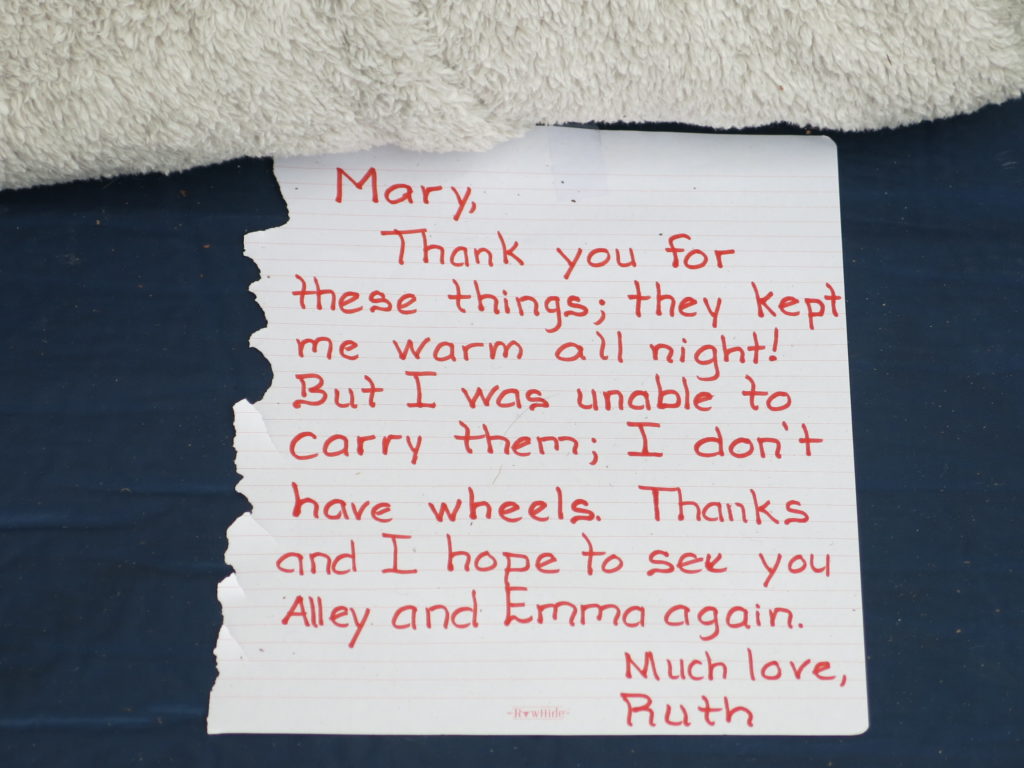 Mary,
Thank you for
these things; they kept
me warm all night!
But I was unable to
carry them; I don't
have wheels. Thanks
and I hope to see you
Alley and Emma again.
Much love,
Ruth